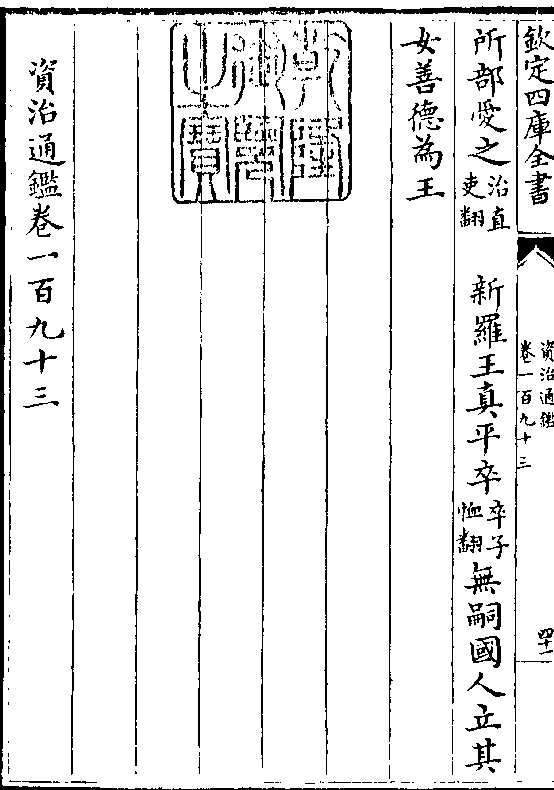 欽定四庫全書
資治通鑑
卷一百九十三
四十一
所部愛之治直吏翻 新羅王真平卒卒子恤翻無嗣國人立其
女善德為王
乾隆御覽之寶
資治通鑑卷一百九十三